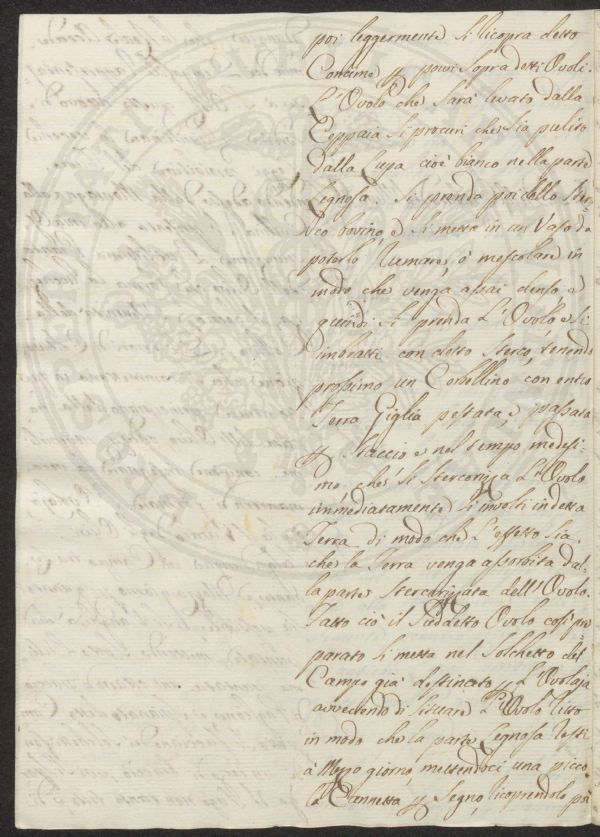 poi leggermente si ricopra detto
Concime p porvi sopra detti Ovoli.
L'Ovolo che sarà levato dalla
Ceppaia si procuri che sia pulito
dalla Lupa cioè bianco nella parte
Legnosa. Si prenda poi dello Ster-
co bovino, e si metta in un Vaso da
poterlo rumare, o mescolare in
modo che venga assai denso e
quindi si prenda L'Ovolo e si
imbratti con detto Sterco, tenendo
prossimo un Corbellino con entro
Terra Giglia pestata, e passata
p Staccio e nel tempo medesi-
mo che si stercorizza L'Ovolo
immediatamente s'involti in detta
Terra di modo che L'effetto sia
che la Terra venga assorbita dal-
la parte stercorizzata dell'Ovolo.
Fatto ciò il suddetto Ovolo così pre
parato si metta nel Solchetto del
Campo già destinato p L'Ovolaja
avvertendo di situare L'Ovolo ritto
in modo che la parte Legnosa resti
a Mezzo giorno, mettendoci una picco
la Cannetta p Segno, ricoprendolo poi